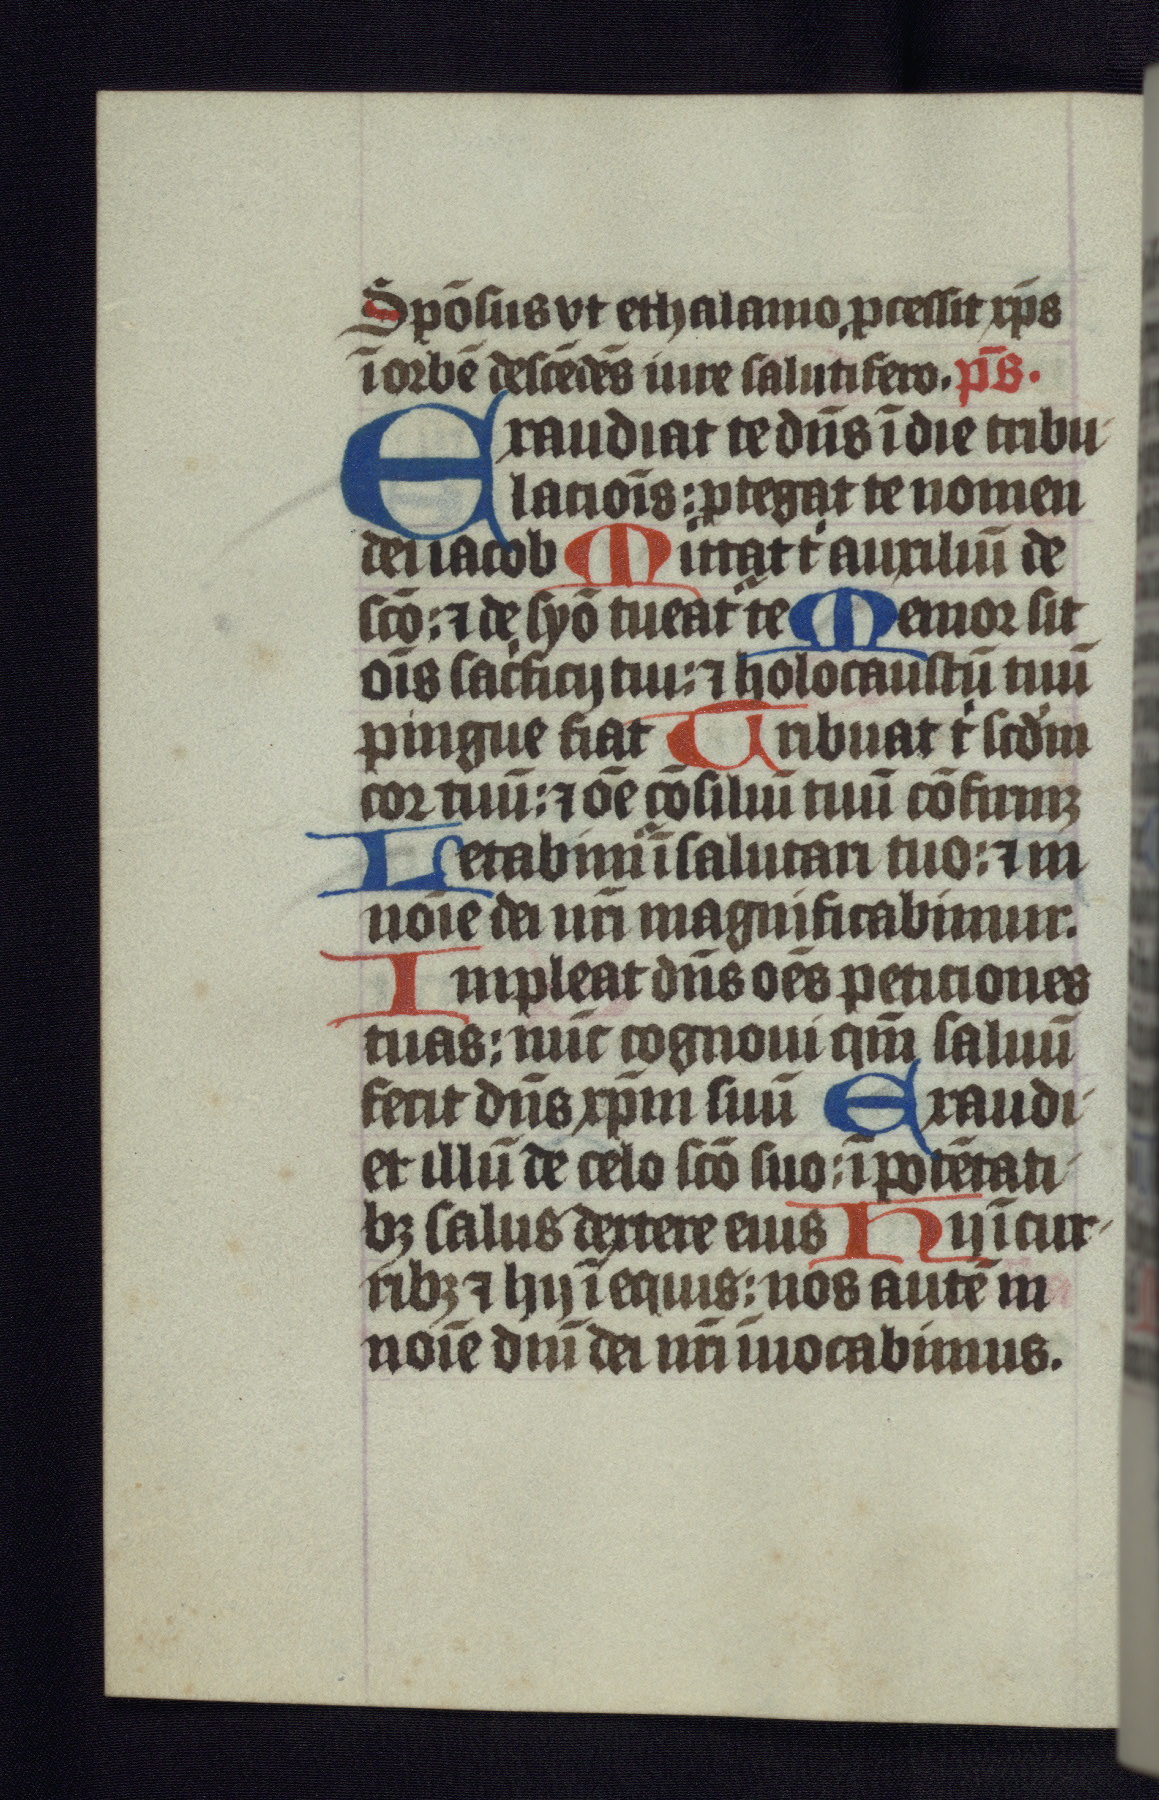 Spōsus vt ethalamo ꝓcessit xp̄s
ī orbē descēdēs iure salutifero. p̄s.
Exaudiat te dn̄s ī die tribu-
lacioīs: ꝓtegat te nomen
dei iacob Mittat tⁱ auxiliū de
scō: ⁊ de syō tueat᷑ te Memor sit
oīs sacⁱficij tui: ⁊ holocaustū tuū
pingue fiat Tribuat tⁱ scd̄m
cor tuū: ⁊ oē cōsiliū tuū cōfirmꝫ
Letabim᷑ ī salutari tuo: ⁊ in
noīe dei nr̄i magnificabimur.
Impleat dn̄s oēs peticiones
tuas: nūc cognoui qm̄ saluū
fecit dn̄s xp̄m suū Exaudi-
et illū de celo scō suo: ī potētati-
bꝫ salus dextere eius Hij ī cur-
ribꝫ ⁊ hij ī equis: nos autē in
noīe dn̄i dei nr̄i īuocabimus.